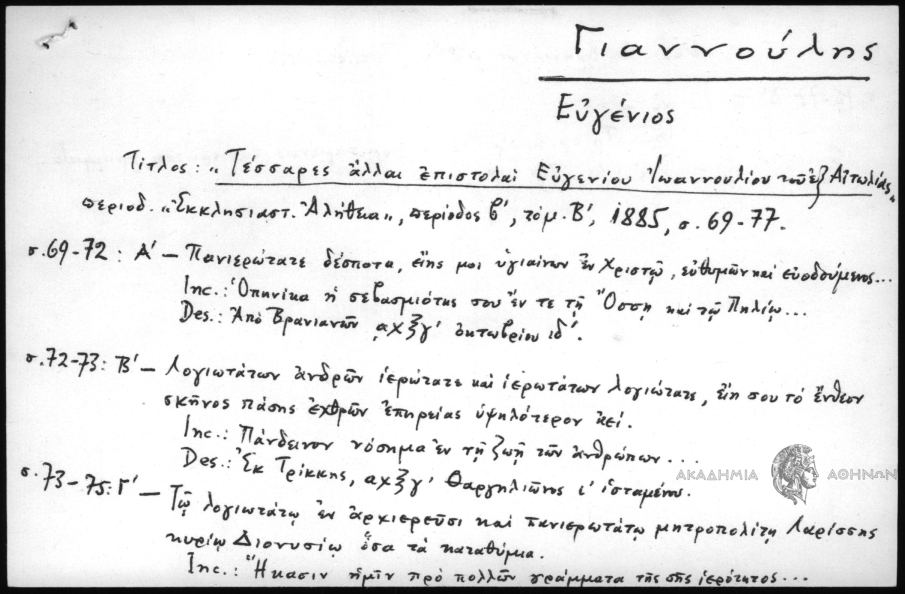 Γιαννούλης
Εὐγένιος
Τίτλος: „Τέσσαρες ἄλλαι ἐπιστολαὶ Εὐγενίου Ἰωαννουλίου τοῦ ἐξ Αἰτωλίας„
περιοδ. „Ἐκκλησιαστ. Ἀλήθεια„, περίοδος β', τόμ. Β', 1885, σ. 69-77.
σ. 69-72: Α' — Πανιερώτατε δέσποτα, εἴης μοι ὑγιαίνων ἐν Χριστῷ, εὐθυμῶν καὶ εὐοδούμενος...
Inc.: Ὁπηνίκα ἡ σεβασμιότης σου ἔν τε τῇ Ὄσσῃ καὶ τῷ Πηλίῳ...
Des.: Ἀπὸ Βρανιανῶν ͵αχξγ' ὀκτωβρίου ιδ'.
σ. 72-73: Β' — Λογιωτάτων ἀνδρῶν ἱερώτατε καὶ ἱερωτάτων λογιώτατε, εἴη σου τὸ ἔνθεον
σκῆνος πάσης ἐχθρῶν ἐπηρείας ὑψηλότερον ἀεί.
Inc.: Πάνδεινον νόσημα ἐν τῇ ζωῇ τῶν ἀνθρώπων...
Des.: Ἐκ Τρίκκης, ͵αχξγ' Θαργηλιῶνος ι' ἱσταμένου.
σ. 73-75: Γ' — Τῷ λογιωτάτῳ ἐν ἀρχιερεῦσι καὶ πανιερωτάτῳ μητροπολίτῃ Λαρίσσης
κυρίῳ Διονυσίῳ ὅσα τὰ καταθύμια.
Inc.: Ἥκασιν ἡμῖν πρὸ πολλῶν γράμματα τῆς σῆς ἱερότητος...
ΑΚΑΔΗΜΙΑ ΑΘΗΝΩΝ